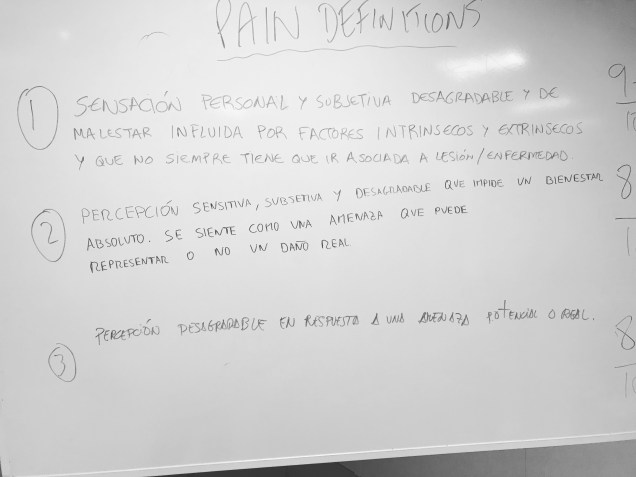 PAIN DEFINITIONS
1 SENSACIÓN PERSONAL Y SUBJETIVA DESAGRADABLE Y DE
MALESTAR INFLUIDA POR FACTORES INTRINSECOS Y EXTRINSECOS
Y QUE NO SIEMPRE TIENE QUE IR ASOCIADA A LESIÓN/ENFERMEDAD.
2 PERCEPCIÓN SENSITIVA, SUBJETIVA Y DESAGRADABLE QUE IMPIDE UN BIENESTAR
ABSOLUTO. SE SIENTE COMO UNA AMENAZA QUE PUEDE
REPRESENTAR O NO UN DAÑO REAL
3 PERCEPCIÓN DESAGRADABLE EN RESPUESTA A UNA AMENAZA POTENCIAL O REAL.
9
8
8